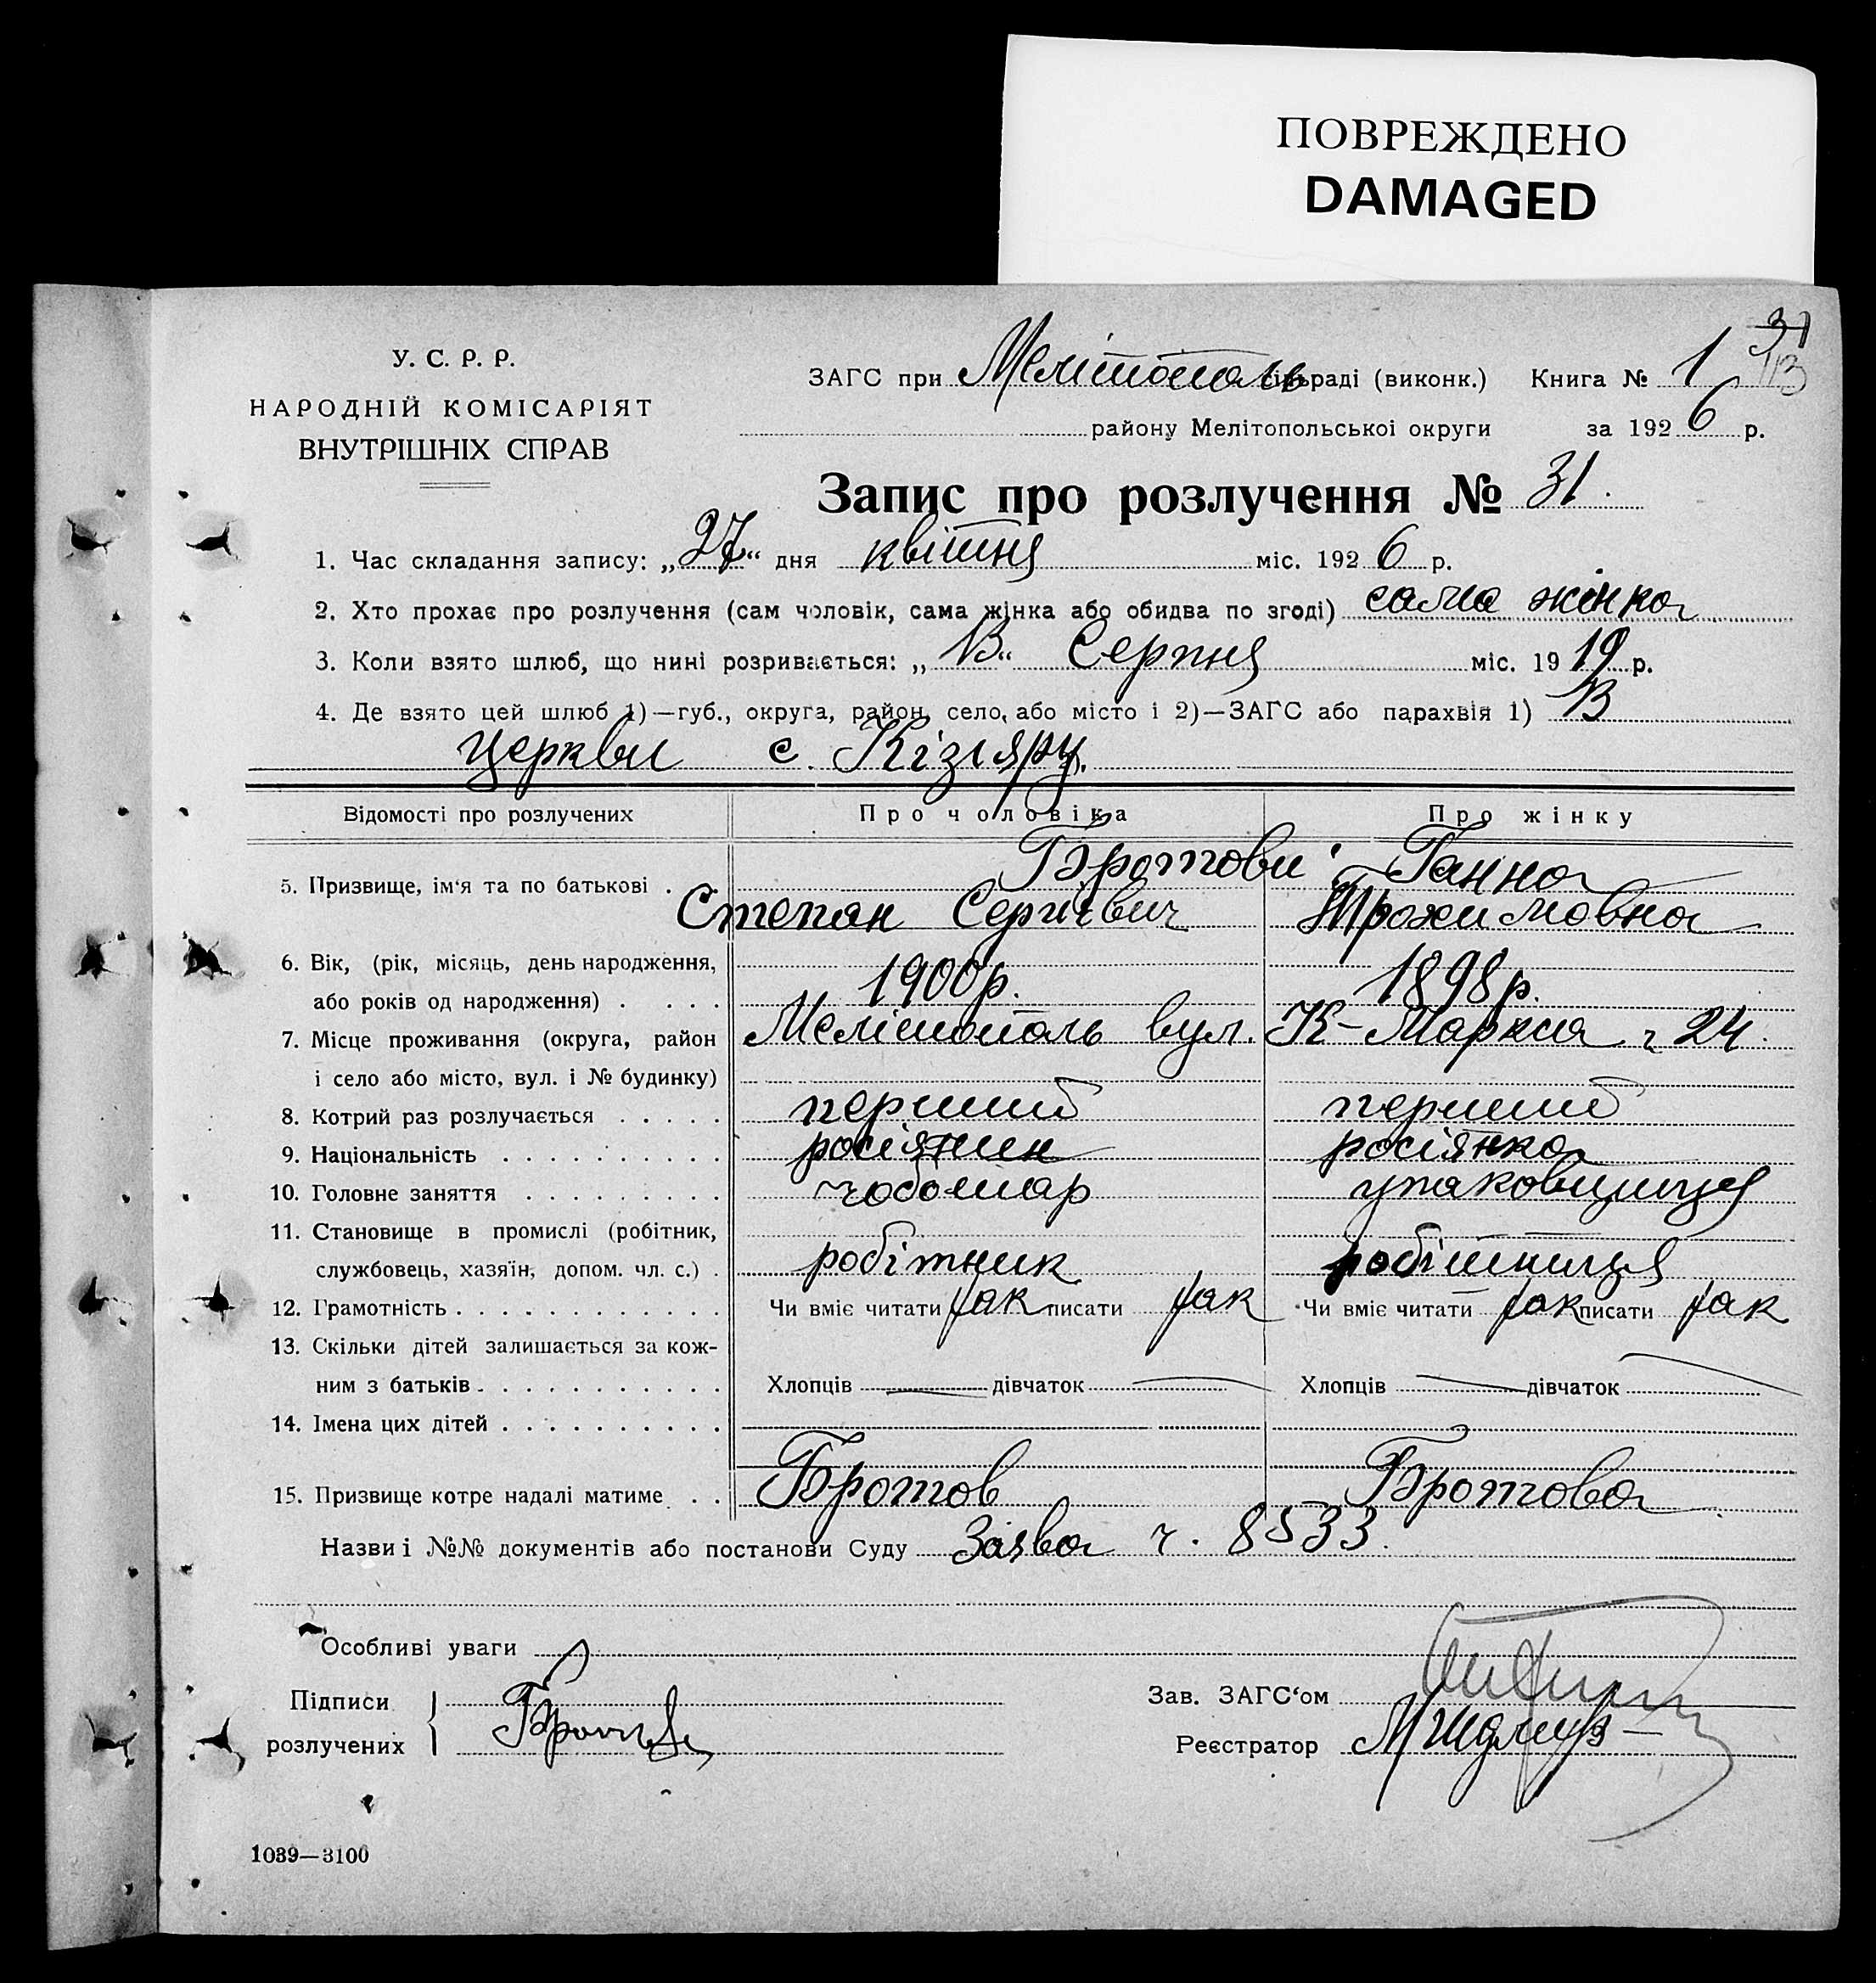 ПОВРЕЖДЕНО
DAMAGED
31
113
У. С. Р. Р.
НАРОДНІЙ КОМІСАРІЯТ
ВНУТРІШНІХ СПРАВ
ЗАГС при Мелітополь сільраді (виконк.) Книга № 1
району Мелітопольської округи за 1926 р.
Запис про розлучення № 31.
1. Час складання запису: „27“ дня квітня міс. 1926 р.
2. Хто прохає про розлучення (сам чоловік, сама жінка або обидва по згоді) сама жінка
3. Коли взято шлюб, що нині розривається: „ “ Серпня міс. 1919 р.
4. Де взято цей шлюб 1)—губ., округа, район, село, або місто і 2)—ЗАГС або парахвія 1) В
церкви с. Кізіяру.
Відомості про розлучених Про чоловіка Про жінку
5. Призвище, ім‘я та по батькові . Бротови: Ганна
Степан Сергієвич Трохимовна
6. Вік, (рік, місяць, день народження,
або років од народження) . . . . 1900р. 1898р.
7. Місце проживання (округа, район Мелітополь вул. К-Маркса ч 24.
і село або місто, вул. і № будинку)
8. Котрий раз розлучається . . . . . перший перший
9. Національність . . . . . . . . . . росіянин росіянка
10. Головне заняття . . . . . . . . . чоботар упаковщиця
11. Становище в промислі (робітник,
службовець, хазяїн, допом. чл. с.) . робітник робітниця
12. Грамотність . . . . . . . . . . . . Чи вміє читати так писати так Чи вміє читати так писати так
13. Скільки дітей залишається за кож-
ним з батьків . . . . . . . . . . . Хлопців — дівчаток — Хлопців — дівчаток —
14. Імена цих дітей . . . . . . . . . .
15. Призвище котре надалі матиме . . Бротов Бротова
Назви і №№ документів або постанови Суду Заява ч. 8533.
Особливі уваги
Підписи Зав. ЗАГС‘ом
розлучених Реєстратор
1039—3100